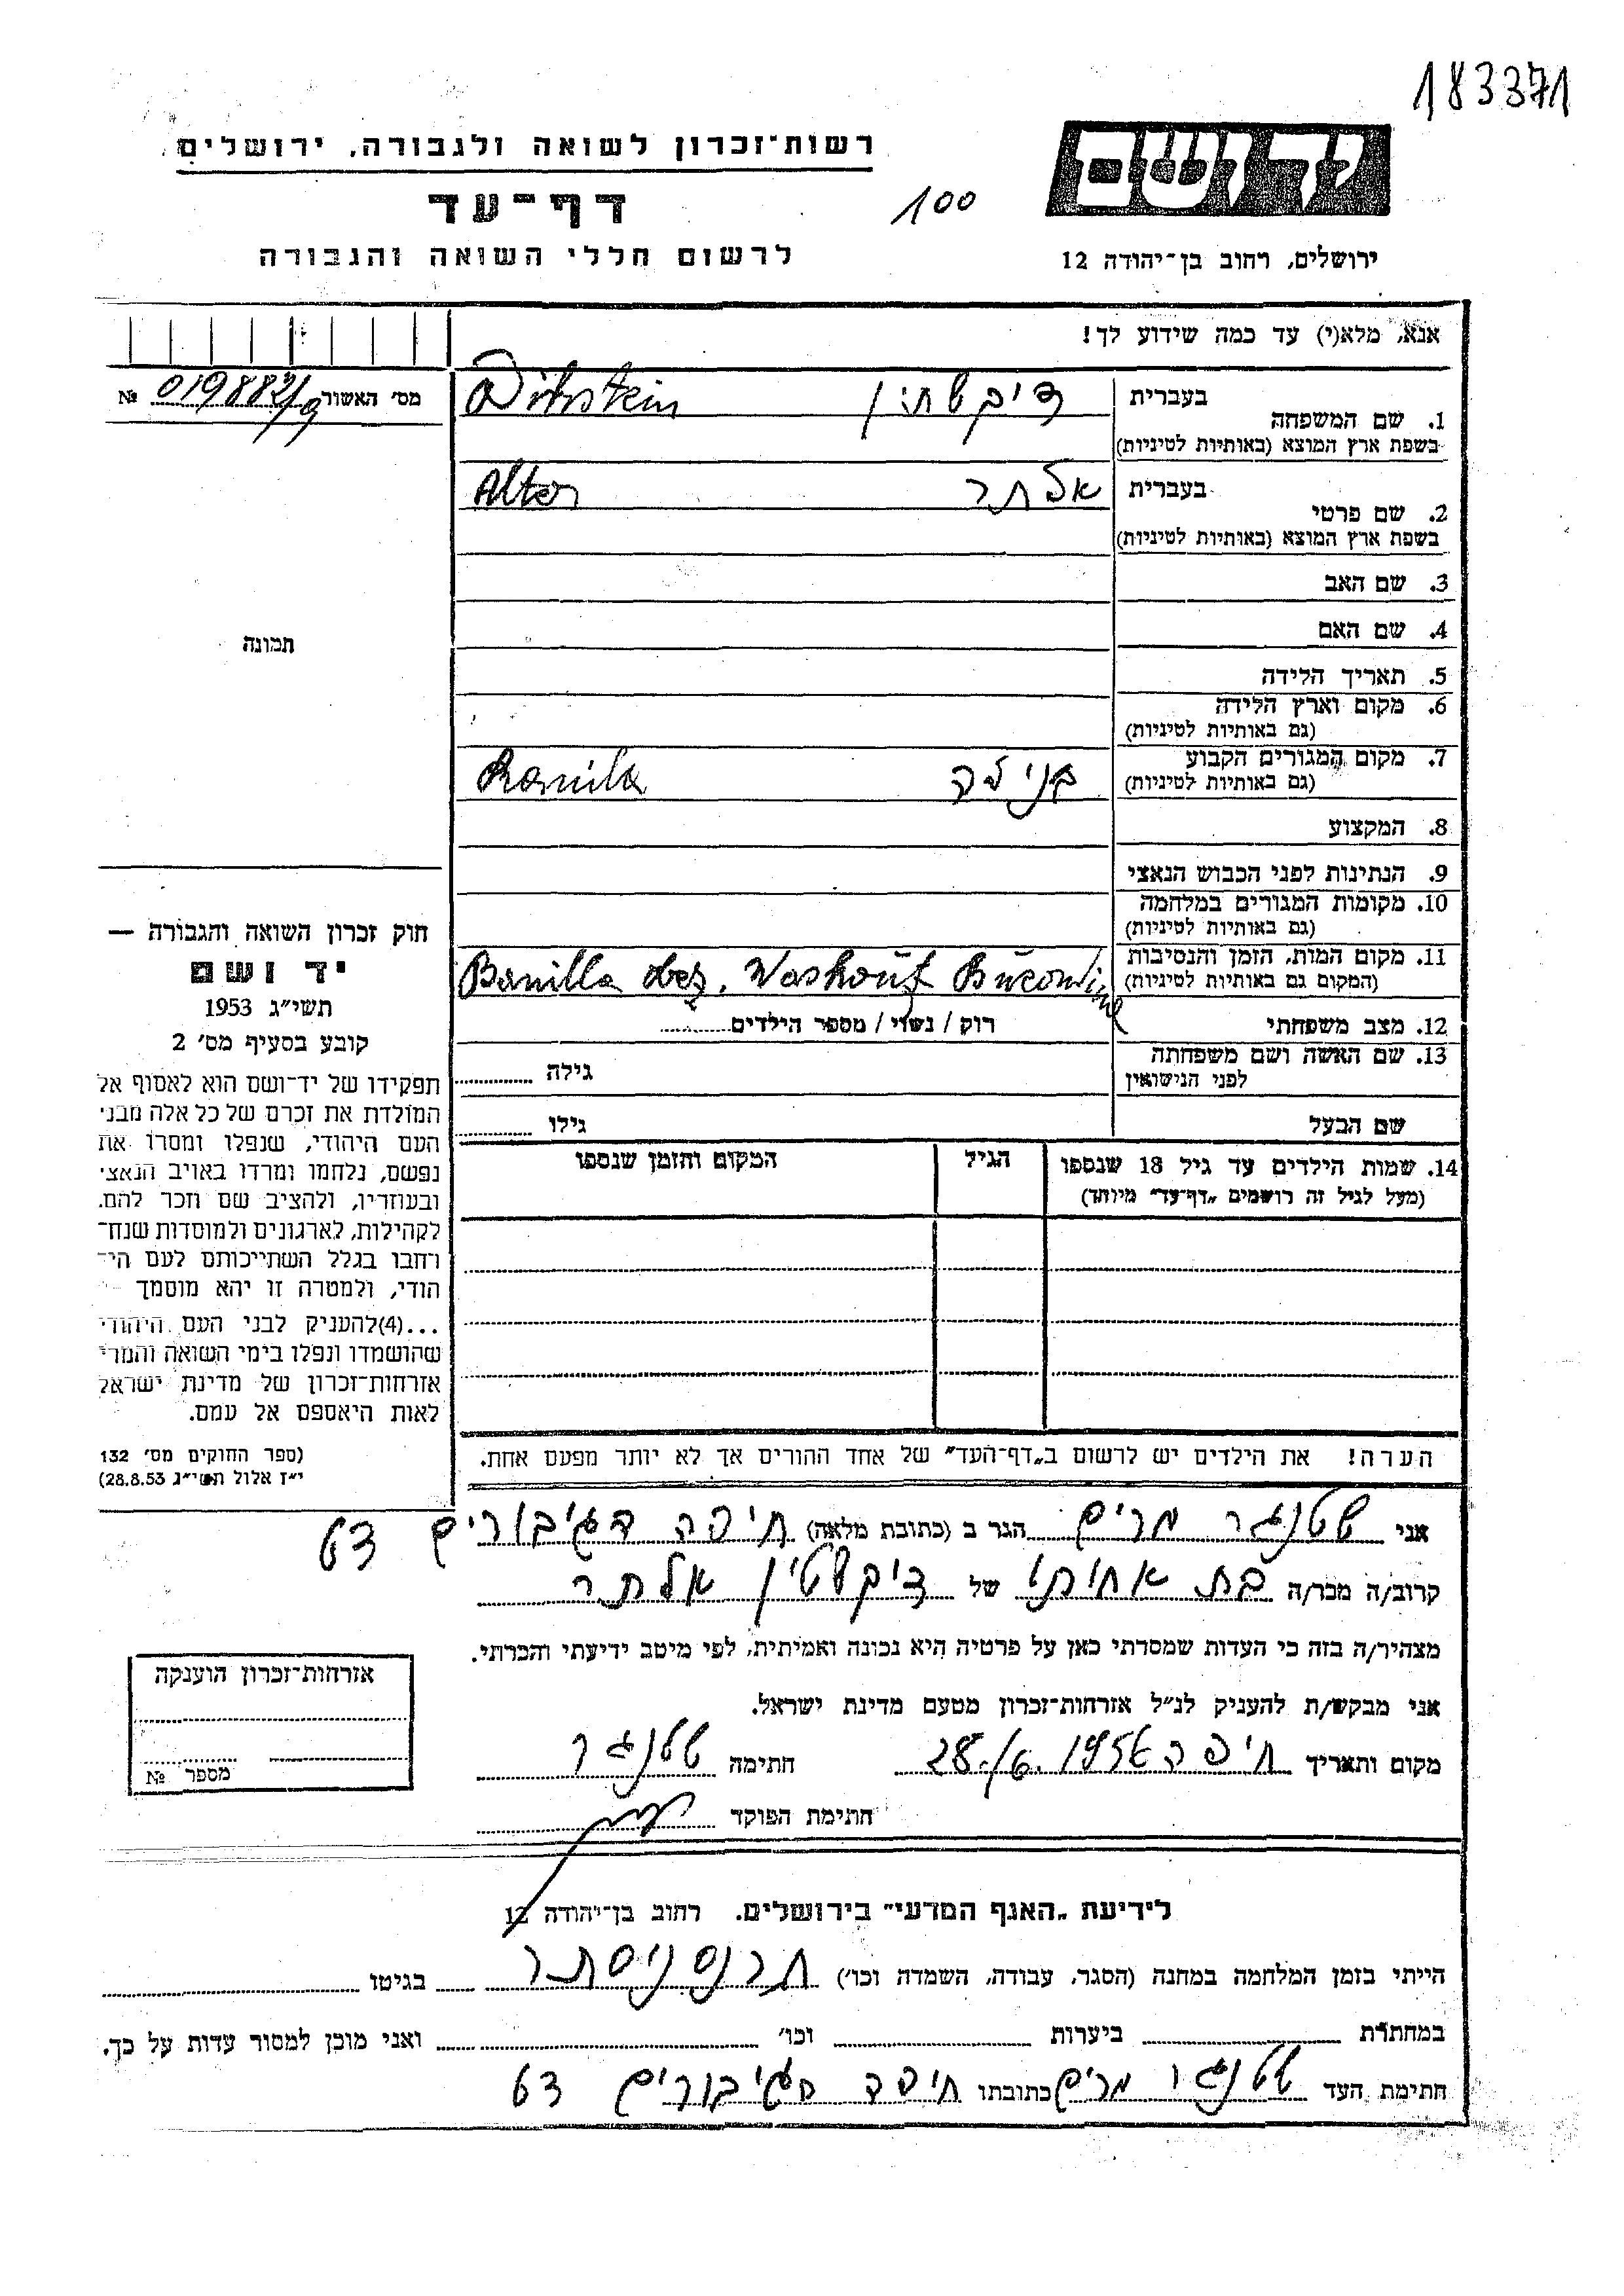 183371
יד ושם
רשות־זכרון לשואה ולגבורה, ירושלים
דף־עד
100
לרשום חללי השואה והגבורה
ירושלים, רחוב בן־יהודה 12
אנא, מלא(י) עד כמה שידוע לך!
מס' האשור 019882/9 №
בעברית
1. שם המשפחה
בשפת ארץ המוצא (באותיות לטיניות)
דיקשתין
בעברית
2. שם פרטי
בשפת ארץ המוצא (באותיות לטיניות)
אלתר Alter
3. שם האב
4. שם האם
5. תאריך הלידה
6. מקום וארץ הלידה
(גם באותיות לטיניות)
7. מקום המגורים הקבוע
(גם באותיות לטיניות)
בנילה Banila
8. המקצוע
9. הנתינות לפני הכבוש הנאצי
10. מקומות המגורים במלחמה
(גם באותיות לטיניות)
11. מקום המות, הזמן והנסיבות
(המקום גם באותיות לטיניות)
Banilla
12. מצב משפחתי רוק / נשוי / מספר הילדים
13. שם האשה ושם משפחתה
לפני הנישואין
גילה
שם הבעל גילו
14. שמות הילדים עד גיל 18 שנספו
(מעל לגיל זה רושמים „דף־עד" מיוחד)
הגיל
המקום והזמן שנספו
הערה! את הילדים יש לרשום ב„דף־העד" של אחד ההורים אך לא יותר מפעם אחת.
תמונה
חוק זכרון השואה והגבורה —
יד ושם
תשי"ג 1953
קובע בסעיף מס' 2
תפקידו של יד־ושם הוא לאסוף אל
המולדת את זכרם של כל אלה מבני
העם היהודי, שנפלו ומסרו את
נפשם, נלחמו ומרדו באויב הנאצי
ובעוזריו, ולהציב שם וזכר להם,
לקהילות, לארגונים ולמוסדות שנח־
רחבו בגלל השתייכותם לעם הי־
הודי, ולמטרה זו יהא מוסמך
...(4)להעניק לבני העם היהודי
שהושמדו ונפלו בימי השואה והמרי
אזרחות־זכרון של מדינת ישראל
לאות היאספם אל עמם.
(ספר החוקים מס' 132
י"ז אלול תשי"ג 28.8.53)
אני שטנגר מרים הגר ב (כתובת מלאה) חיפה הגיבורים
קרוב/ה מכר/ה בת אחותו של דיקשטין אלתר
מצהיר/ה בזה כי העדות שמסרתי כאן על פרטיה היא נכונה ואמיתית, לפי מיטב ידיעתי והכרתי.
אני מבקש/ת להעניק לנ"ל אזרחות־זכרון מטעם מדינת ישראל.
מקום ותאריך חיפה 28./6.195 חתימה שטנגר
חתימת הפוקד
אזרחות־זכרון הוענקה
מספר №
לידיעת „האגף המדעי" בירושלים. רחוב בן־יהודה 12
הייתי בזמן המלחמה במחנה (הסגר, עבודה, השמדה וכו') תרנסניסתר בגיטו
במחתרת ביערות וכו' ואני מוכן למסור עדות על כך.
חתימת העד שטנגר מרים כתובתו חיפה הגיבורים